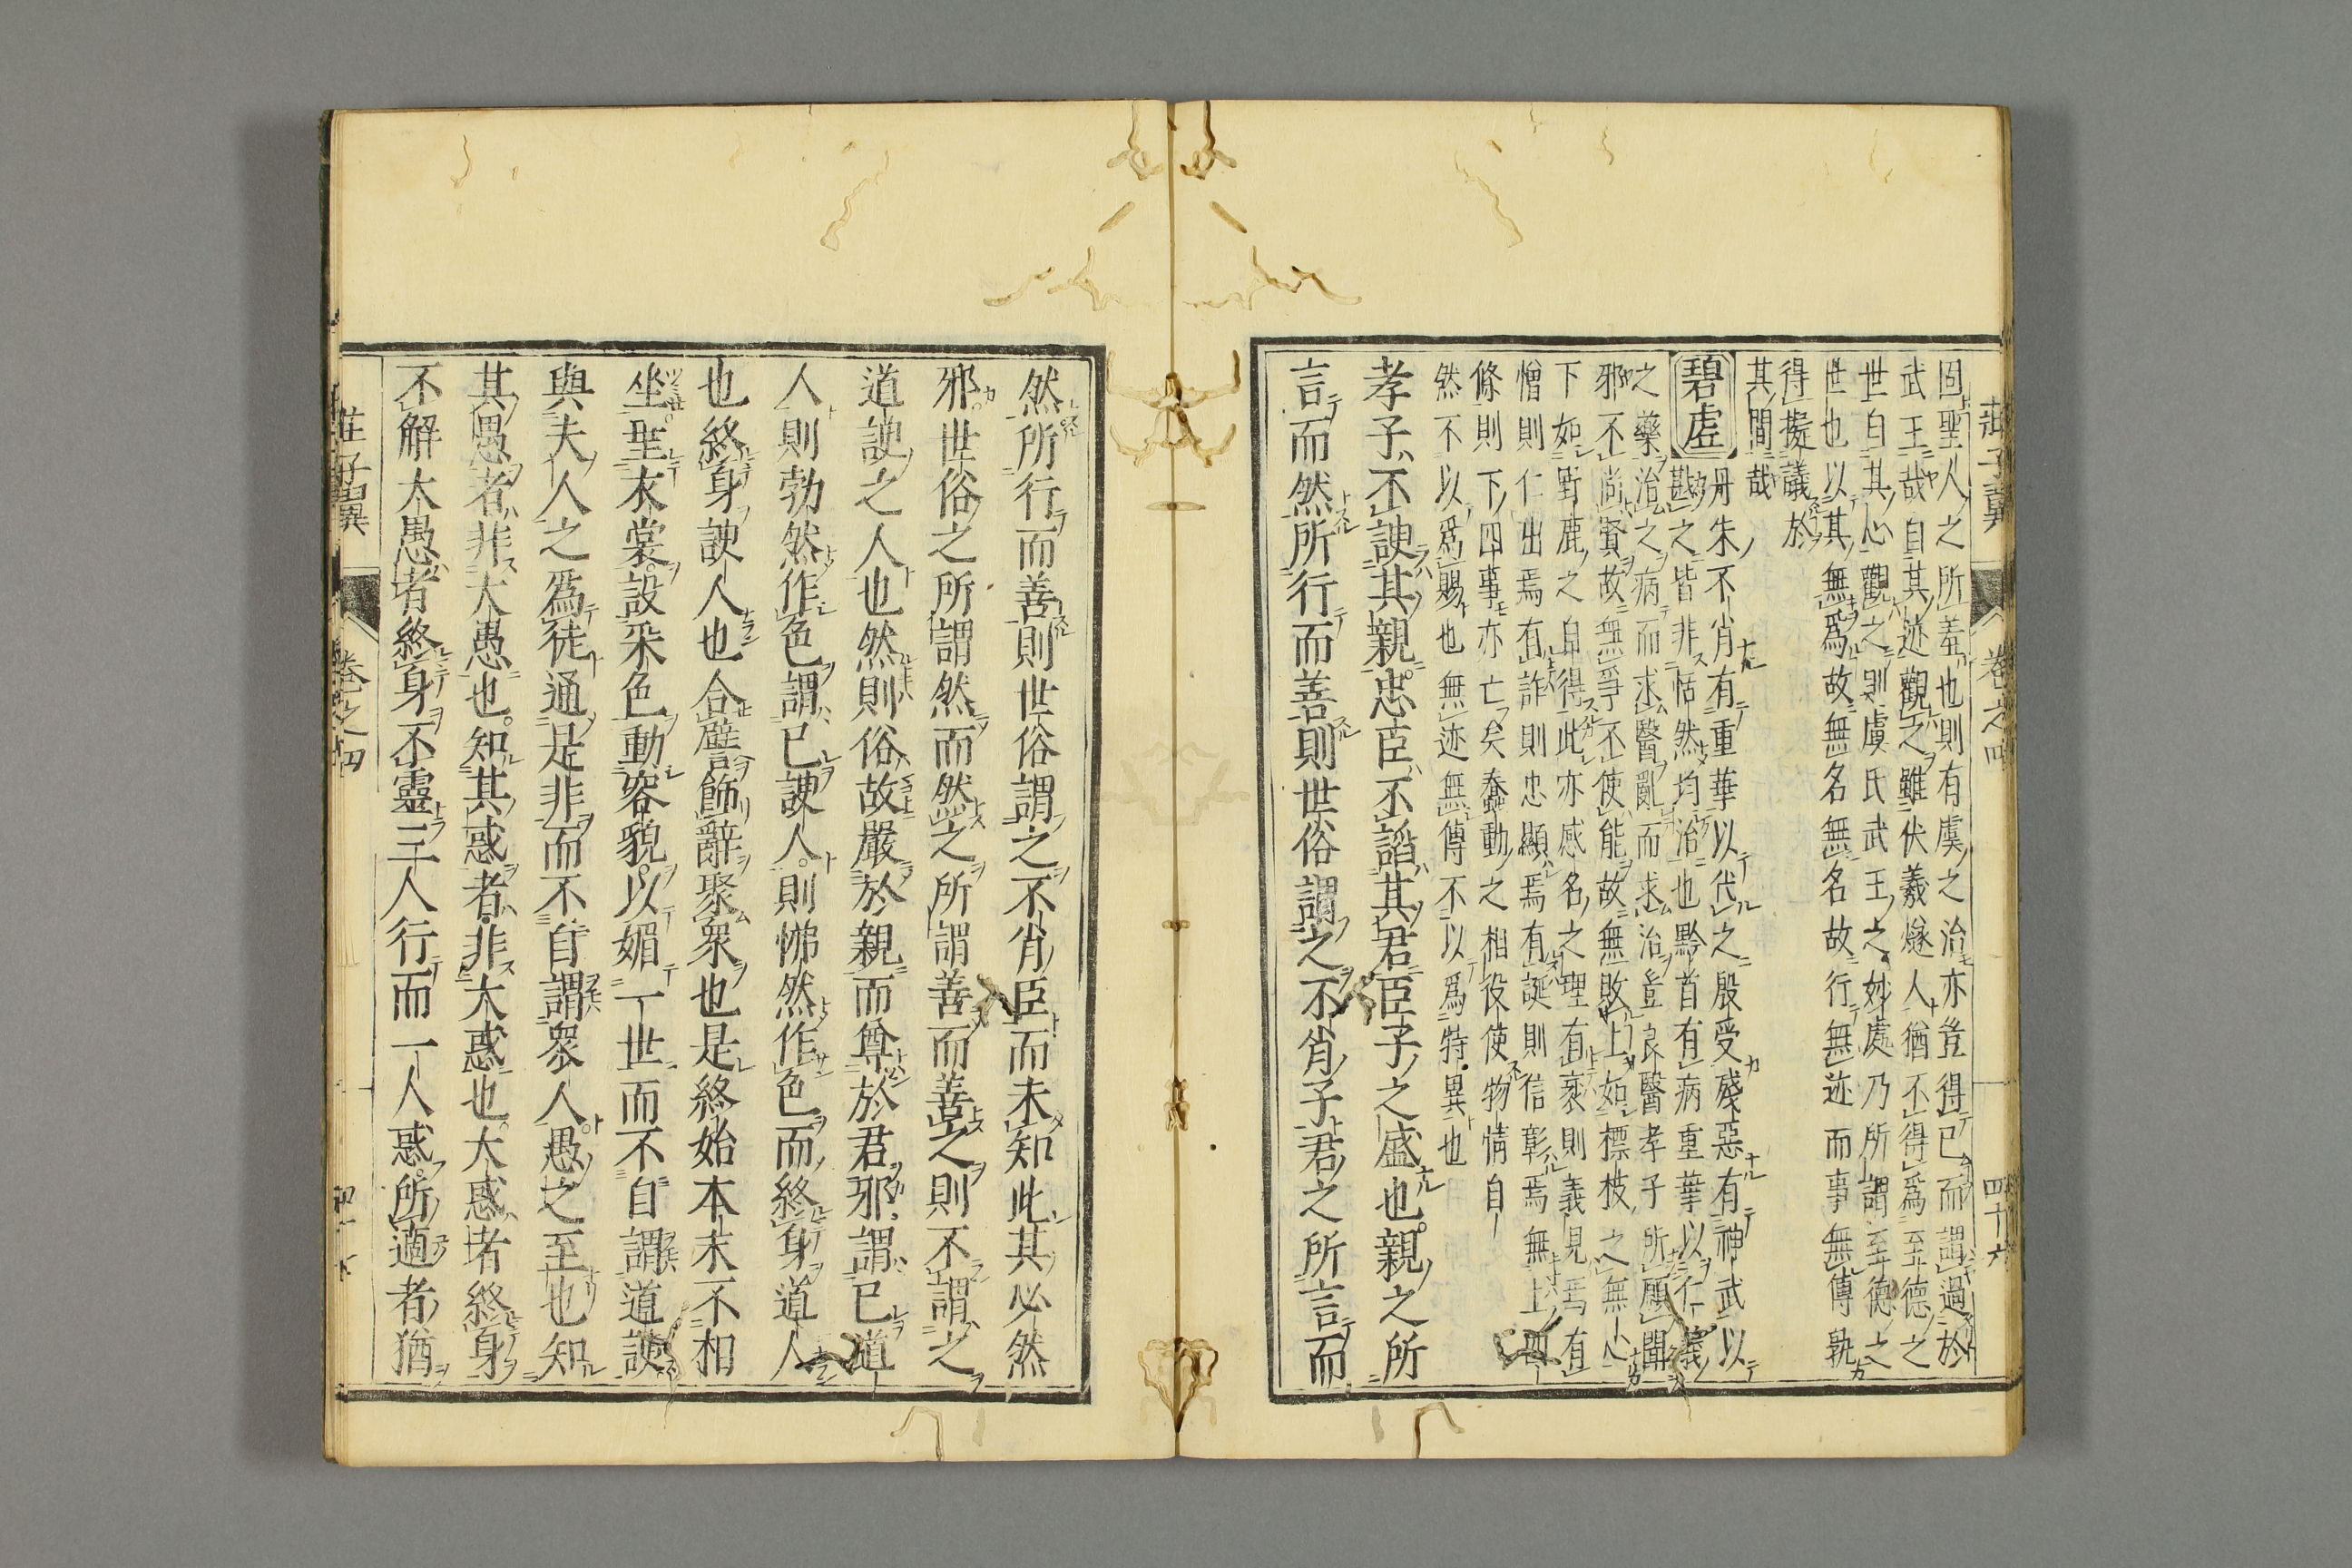 莊子翼 卷之四 四十六
固聖人之所羞也則有虞之治亦豈得已而謂過於
武王哉自其迹觀之雖伏羲燧人猶不得爲至德之
世自其心觀之則虞氏武王之妙處乃所謂至德之
世也以其無爲故無名無名故行無迹而事無傳孰
得擬議於
其間哉
碧虛 丹朱不肖有重華以代之殷受殘惡有神武以
戡之皆非恬然均治也黔首有病重華以仁義
之藥治之病而求醫亂而求治豈良醫孝子所願聞
邪不尚賢故無爭不使能故無敗上如標枝之無心
下如野鹿之自得此亦感名之理有裹則義見焉有
憎則仁出焉有詐則忠顯焉有誕則信彰焉無上四
條則下四事亦亡矣蠢動之相役使物情自
然不以爲賜也無迹無傳不以爲特異也
孝子不諛其親忠臣不諂其君臣子之盛也親之所
言而然所行而善則世俗謂之不肖子君之所言而
然所行而善則世俗謂之不肖臣而未知此其必然
邪世俗之所謂然而然之所謂善而善之則不謂之
道諛之人也然則俗故嚴於親而尊於君邪謂已道
人則勃然作色謂已諛人則怫然作色而終身道人
也終身諛人也合譬飾辭聚衆也是終始本末不相
坐垂衣裳設采色動容貌以媚一世而不自謂道諛
與夫人之爲徒通是非而不自謂衆人愚之至也知
其愚者非大愚也知其惑者非大惑也大惑者終身
不解大愚者終身不靈三人行而一人惑所適者猶
莊子翼 卷之四